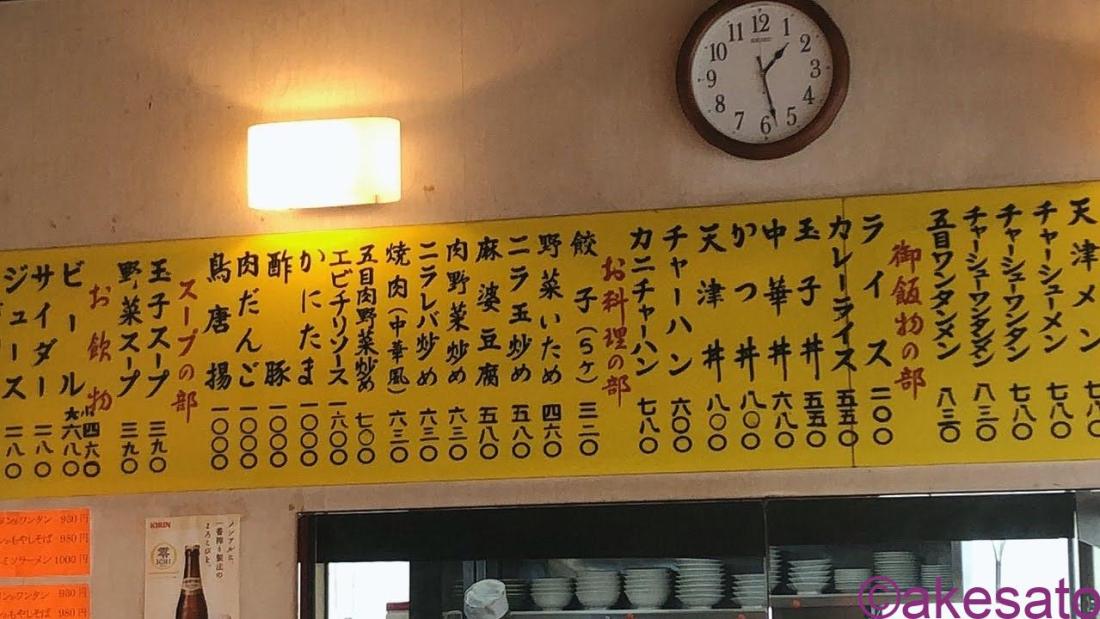 12
1
2
3
4
5
6
7
8
9
10
11
SEIKO
天津メン 七八〇
チャーシューメン 七八〇
チャーシューワンタン 七八〇
チャーシューワンタンメン 八三〇
五目ワンタンメン 八三〇
御飯物の部
ライス 二〇〇
カレーライス 五五〇
玉子丼 五五〇
中華丼 六八〇
かつ丼 八〇〇
天津丼 八〇〇
チャーハン 六〇〇
カニチャーハン 七八〇
お料理の部
餃子(5ヶ) 三二〇
野菜いため 四六〇
ニラ玉炒め 五八〇
麻婆豆腐 五八〇
肉野菜炒め 六三〇
ニラレバ炒め 六三〇
焼肉(中華風) 六三〇
五目肉野菜炒め 七〇〇
エビチリソース 一六〇〇
かにたま 一〇〇〇
酢豚 一〇〇〇
肉だんご 一〇〇〇
鳥唐揚 一〇〇〇
スープの部
玉子スープ 三九〇
野菜スープ 三九〇
お飲物
ビール 小四六〇 大六八〇
サイダー 二八〇
ジュース 二八〇
ワンタン 930円
もやしそば 980円
ミソラーメン 1000円
ワンタン 930円
もやしそば 980円
KIRIN
零
ICHI
ノンアルに、
一番搾り製法の
よろこびを。
©akesato